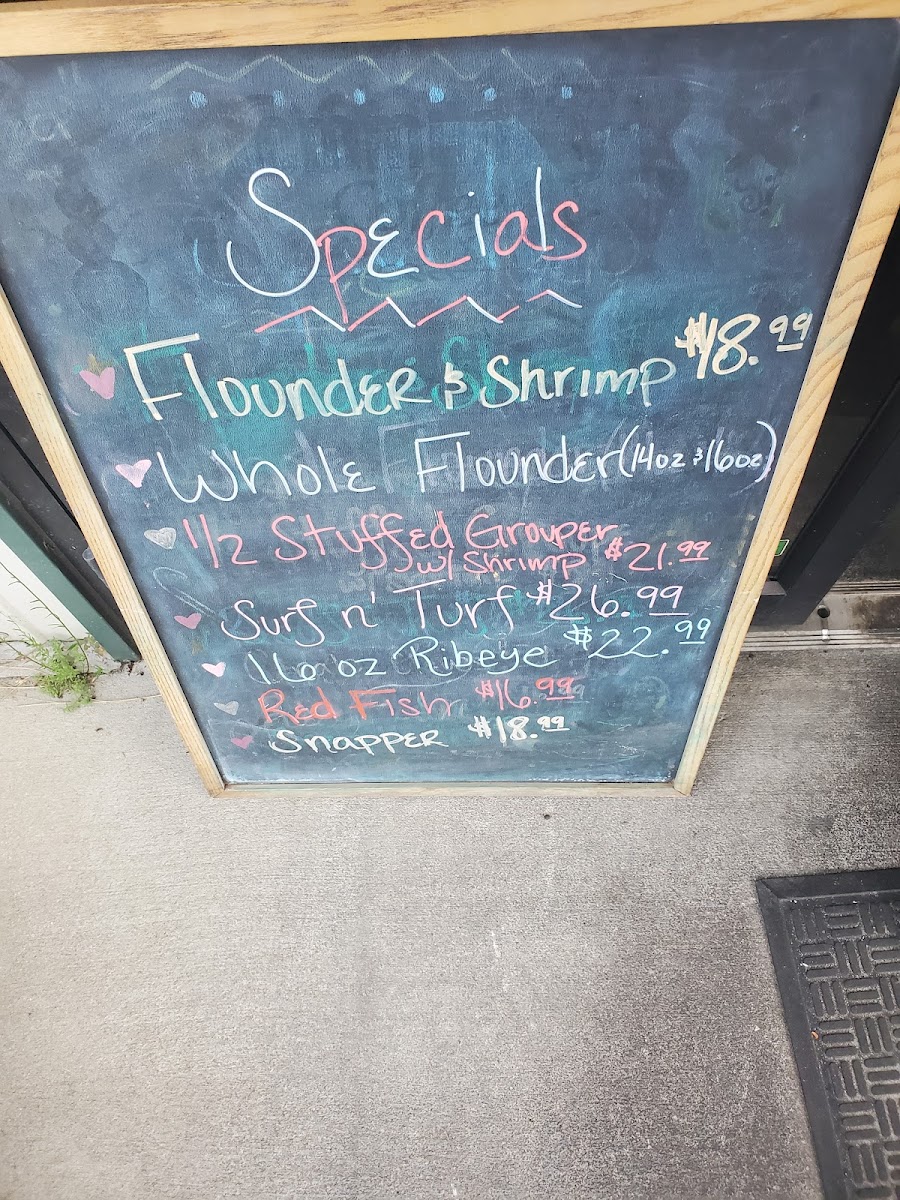 Specials
Flounder & Shrimp $18.99
Whole Flounder (14oz & 16oz)
1/2 Stuffed Grouper
w/ Shrimp $21.99
Surf n' Turf $26.99
16 oz Ribeye $22.99
Red Fish $16.99
Snapper $18.99